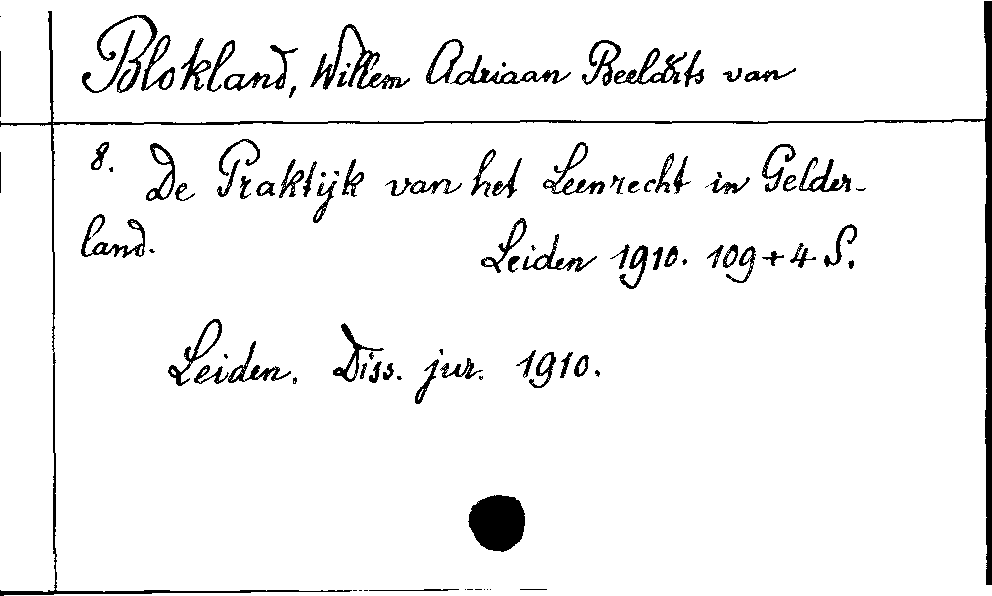 Blokland, Willem Adriaan Beelaerts van
8. De Praktijk van het Leenrecht in Gelder-
land.
Leiden 1910. 109 + 4 S.
Leiden. Diss. jur. 1910.